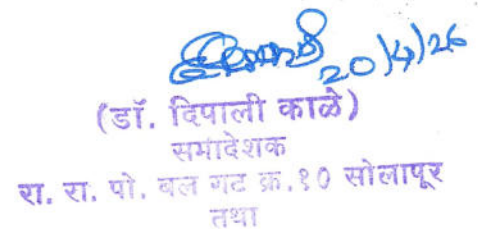 20/4/26
(डॉ. दिपाली काळे)
समादेशक
रा. रा. पो. बल गट क्र.१० सोलापूर
तथा